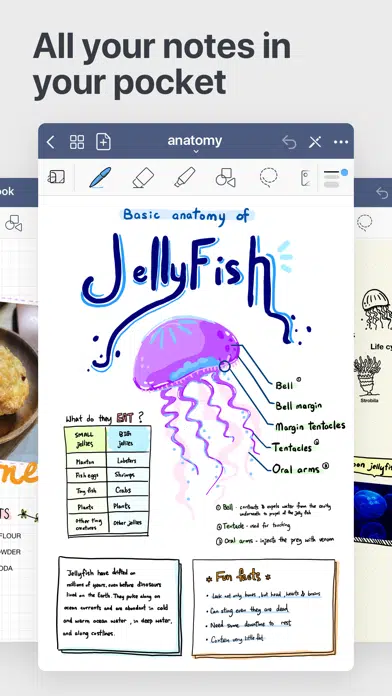 All your notes in
your pocket
anatomy
ook
Basic anatomy of
JellyFish
Bell ①
Bell margin
Margin tentacles
Tentacles ②
Oral arms ③
What do they EAT ?
SMALL jellies
BIG jellies
Plankton
Lobsters
Fish eggs
Shrimps
Tiny fish
Crabs
Plants
Plants
Other tiny creatures
Other jellies
① Bell - contracts & expels water from the cavity
underneath to propel the jelly fish
② Tentacle - used for touching
③ Oral arms - injects the prey with venom
Jellyfish have drifted on
millions of years, even before dinosaurs
lived on the Earth. They pulse along on
ocean currents and are abundant in cold
and warm ocean water, in deep water,
and along coastlines.
* Fun facts *
• Lack not only bones, but head, hearts & brains
• Can sting even they are dead
• Need some downtime to rest
• Contain very little fat
FLOUR
OWDER
ODA
Life cy
Strobila
oon jellyfis